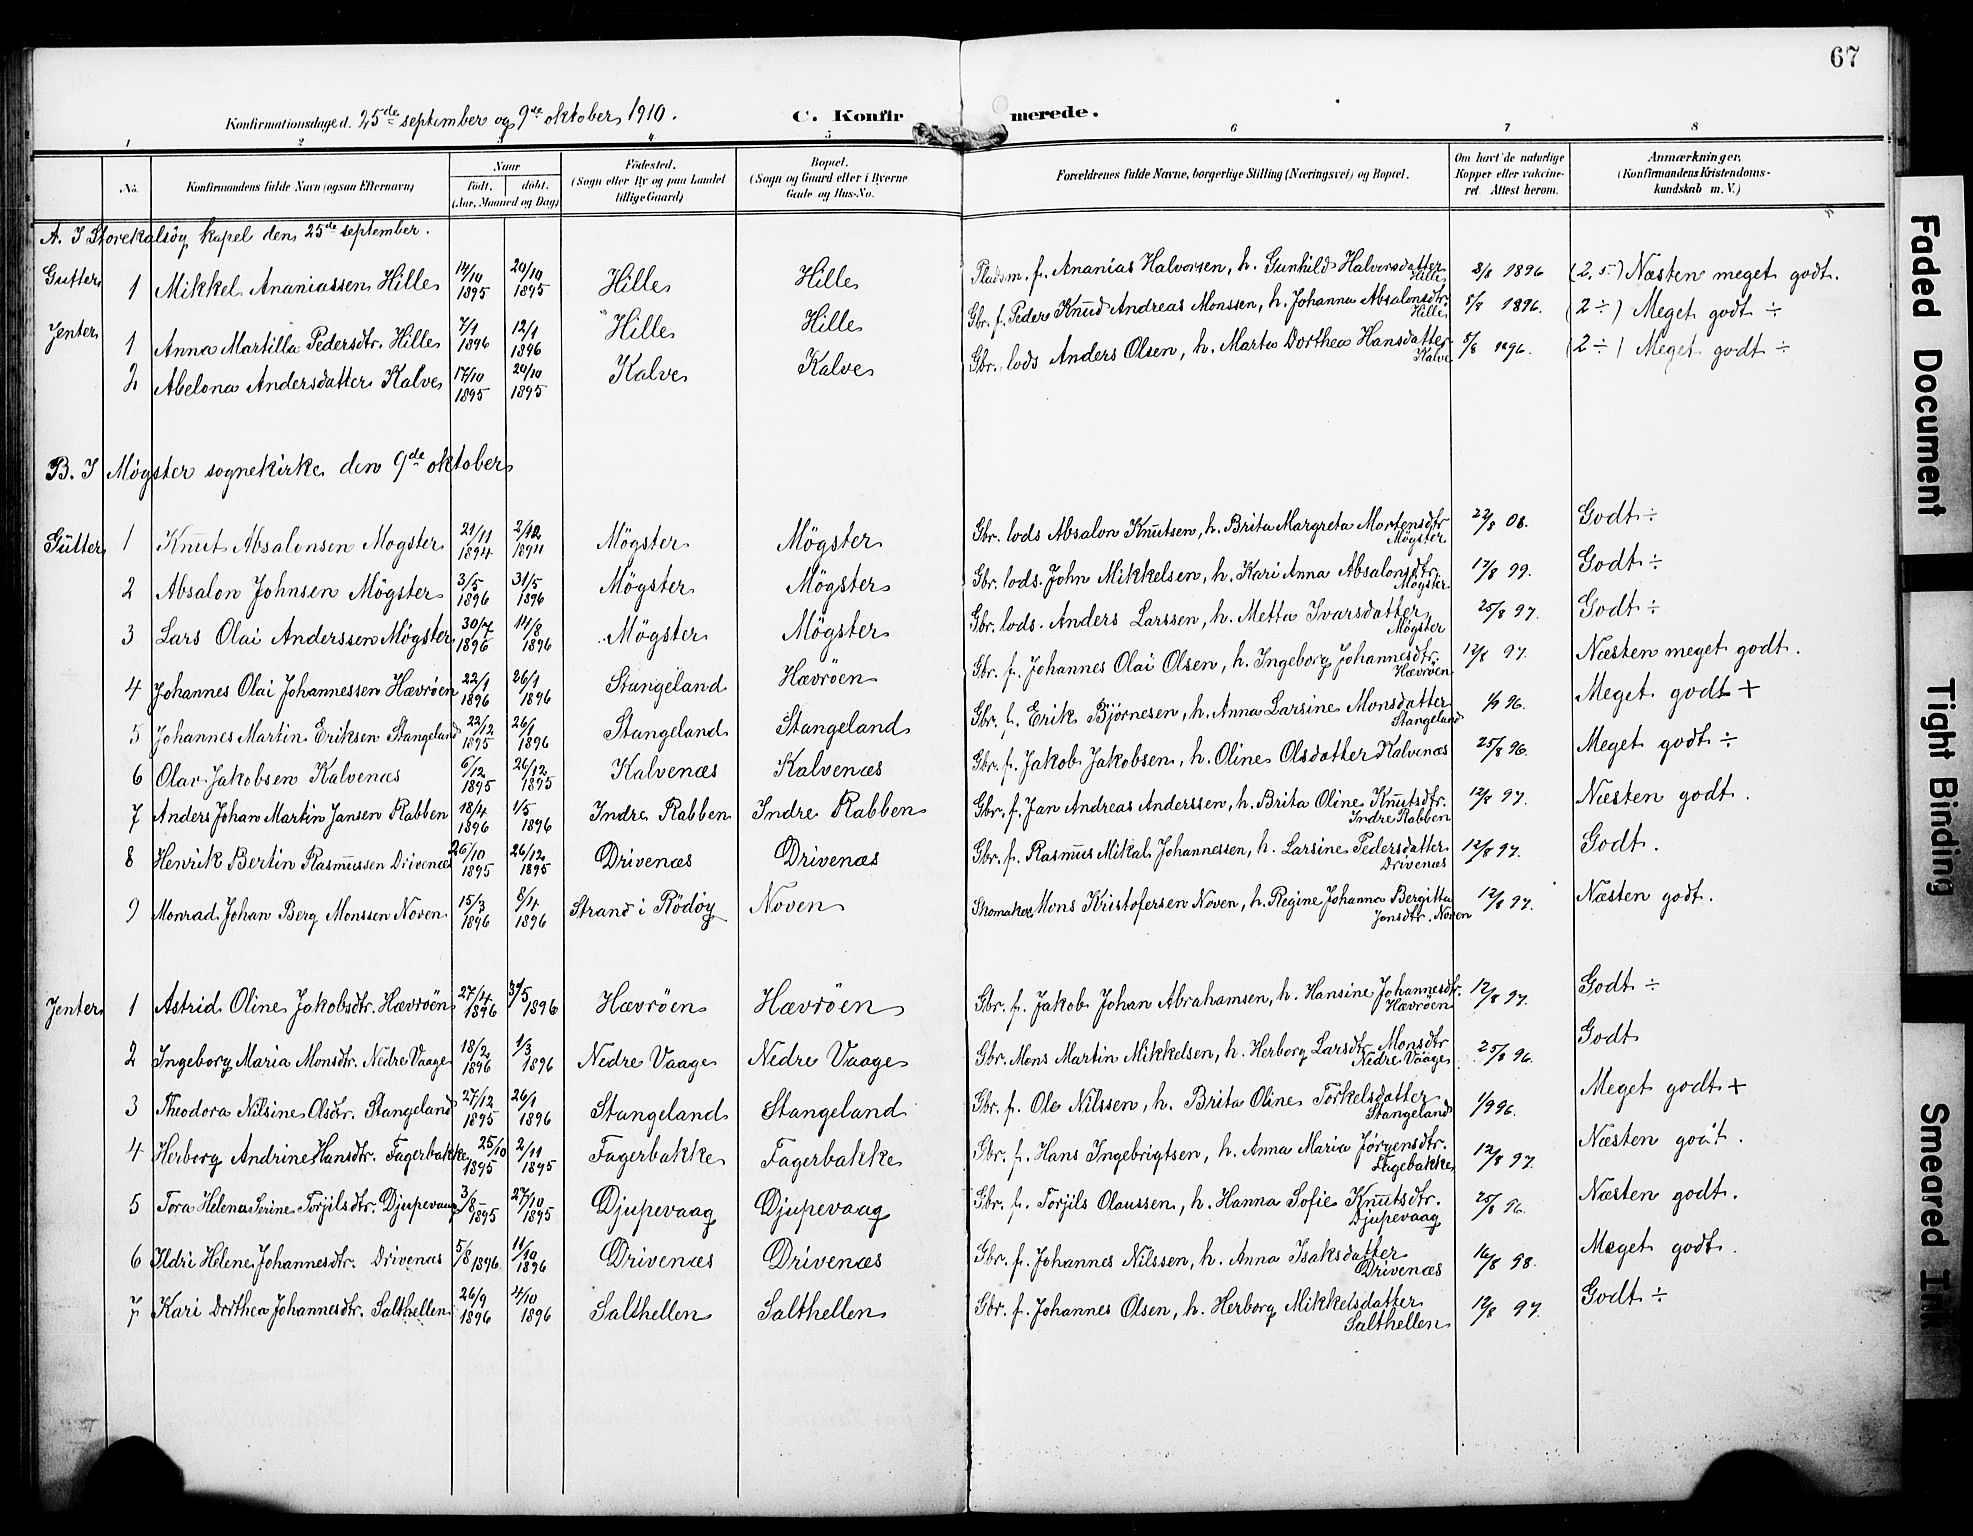 67
Konfirmationsdage d. 25de september og 9de oktober 1910. C. Konfirmerede.
1 2 3 4 5 6 7 8
No. Konfirmandens fulde Navn (ogsaa Efternavn) Naar født. døbt. (Aar, Maaned og Dag) Fødested. (Sogn eller By og paa Landet tillige Gaard) Bopæl. (Sogn og Gaard eller i Byerne Gade og Hus-No. Forældrenes fulde Navne, borgerlige Stilling (Næringsvei) og Bopæl. Om havt de naturlige Kopper eller vakcineret. Attest herom. Anmærkninger, (Konfirmandens Kristendomskundskab m. V.)
A. I Storekalsøy kapel den 25de september.
Gutter 1 Mikkel Ananiassen Hille 14/10 1895 20/10 1895 Hille Hille Pladsm. f. Ananias Halvorsen, h. Gunhild Halvorsdatter Hille 8/8 1896 (2,5) Næsten meget godt.
Jenter 1 Anna Martilla Pedersdtr. Hille 7/1 1896 12/1 1896 Hille Hille Gbr. f. Peder Knud Andreas Monssen, h. Johanna Absalonsdtr. Hille 8/8 1896. (2 ÷) Meget godt ÷
2 Abelona Andersdatter Kalve 17/10 1895 20/10 1895 Kalve Kalve Gbr. lods Anders Olsen, h. Marta Dorthea Hansdatter Kalve 8/8 1896. (2 ÷) Meget godt ÷
B. I Møgster sognekirke den 9de oktober
Gutter 1 Knut Absalonsen Møgster 21/11 1894 2/12 1894 Møgster Møgster Gbr. lods Absalon Knutsen, h. Brita Margreta Mortensdtr Møgster 22/8 08. Godt ÷
2 Absalon Johnsen Møgster 3/5 1896 31/5 1896 Møgster Møgster Gbr. lods. John Mikkelsen, h. Kari Anna Absalonsdtr. Møgster 17/8 99. Godt ÷
3 Lars Olai Anderssen Møgster 30/7 1896 14/8 1896 Møgster Møgster Gbr. lods. Anders Larssen, h. Metta Ivarsdatter Møgster 25/8 97. Godt ÷
4 Johannes Olai Johannessen Hævrøen 22/1 1896 26/1 1896 Stangeland Hævrøen Gbr. f. Johannes Olai Olsen, h. Ingeborg Johannesdtr. Hævrøen 12/8 97. Næsten meget godt.
5 Johannes Martin Eriksen Stangeland 22/12 1895 26/1 1896 Stangeland Stangeland Gbr. f. Erik Bjørnesen, h. Anna Larsine Monsdatter Stangeland 1/9 96. Meget godt +
6 Olav Jakobsen Kalvenæs 6/12 1895 26/12 1895 Kalvenæs Kalvenæs Gbr. f. Jakob Jakobsen, h. Oline Olsdatter Kalvenæs 25/8 96. Meget godt ÷
7 Anders Johan Martin Jansen Rabben 18/4 1896 1/5 1896 Indre Rabben Indre Rabben Gbr. f. Jan Andreas Anderssen, h. Brita Oline Knutsdtr. Indre Rabben 12/8 97. Næsten godt.
8 Henrik Bertin Rasmussen Drivenæs 26/10 1895 26/12 1895 Drivenæs Drivenæs Gbr. f. Rasmus Mikal Johannessen, h. Larsine Pedersdatter Drivenæs 12/8 97. Godt.
9 Monrad Johan Berg Monssen Noven 15/3 1896 8/4 1896 Strand i Rödöy Noven Skomaker Mons Kristofersen Noven, h. Regine Johanna Bergitta Jonsdtr. Noven 12/8 97. Næsten godt.
Jenter 1 Astrid Oline Jakobsdtr. Hævrøen 27/4 1896 31/5 1896 Hævrøen Hævrøen Gbr. f. Jakob Johan Abrahamsen, h. Hansine Johannesdtr. Hævrøen 12/8 97. Godt ÷
2 Ingeborg Maria Monsdtr. Nedre Vaage 18/2 1896 1/3 1896 Nedre Vaage Nedre Vaage Gbr. Mons Martin Mikkelsen, h. Herborg Larsdtr Monsdtr Nedre Vaage 25/8 96. Godt
3 Theodora Nilsine Olsdtr. Stangeland 27/12 1895 26/1 1896 Stangeland Stangeland Gbr. f. Ole Nilssen, h. Brita Oline Torkelsdatter Stangeland 1/9 96. Meget godt +
4 Herborg Andrine Hansdtr. Fagerbakke 25/10 1895 2/11 1895 Fagerbakke Fagerbakke Gbr. f. Hans Ingebrigtsen, h. Anna Maria Jørgensdtr. Fagebakke 12/8 97. Næsten godt.
5 Tora Helena Serine Torjilsdtr. Djupevaag 3/8 1895 27/10 1895 Djupevaag Djupevaag Gbr. f. Torjils Olaussen, h. Hanna Sofie Knutsdtr. Djupevaag 25/8 96. Næsten godt.
6 Ildri Helene Johannesdtr. Drivenæs 5/8 1896 11/10 1896 Drivenæs Drivenæs Gbr. f. Johannes Nilssen, h. Anna Isaksdatter Drivenæs 16/8 98. Meget godt.
7 Kari Dorthea Johannesdtr. Salthellen 26/9 1896 4/10 1896 Salthellen Salthellen Gbr. f. Johannes Olsen, h. Herborg Mikkelsdatter Salthellen 12/8 97. Godt ÷
Faded Document
Tight Binding
Smeared Ink